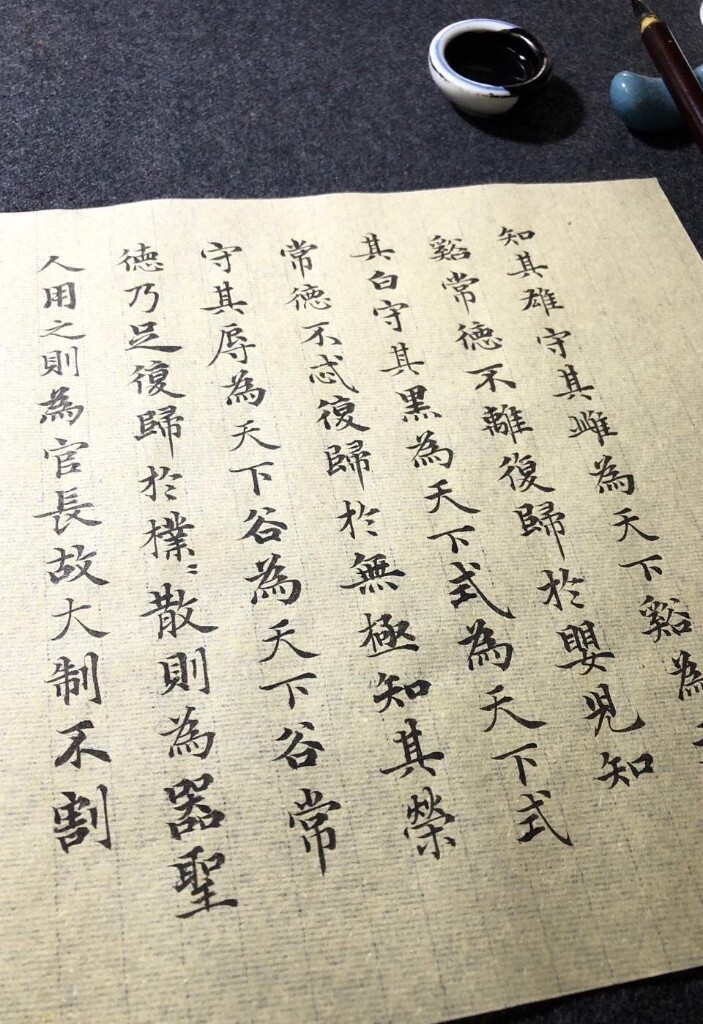 知其雄守其雌為天下谿為
谿常德不離復歸於嬰兒知
其白守其黑為天下式為天下式
常德不忒復歸於無極知其榮
守其辱為天下谷為天下谷常
德乃足復歸於樸〻散則為器聖
人用之則為官長故大制不割